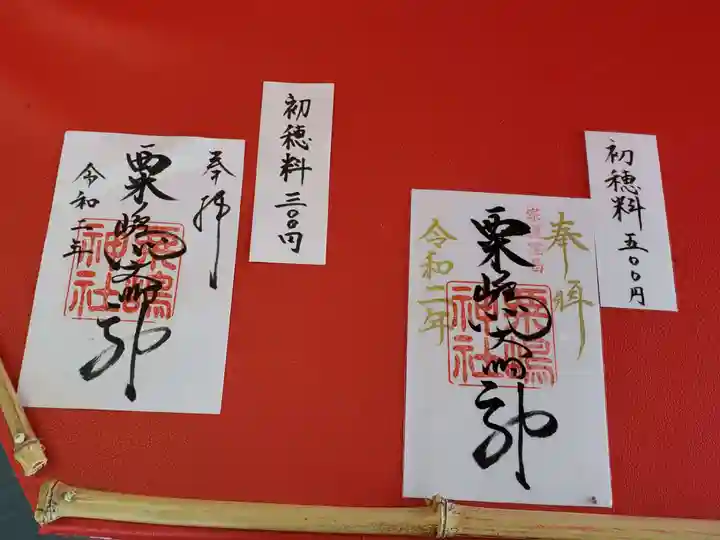 奉拝
粟嶋大明神
令和二年
粟嶋
神社
初穂料三〇〇円
奉拝
粟嶋大明神
令和二年
粟嶋
神社
初穂料五〇〇円